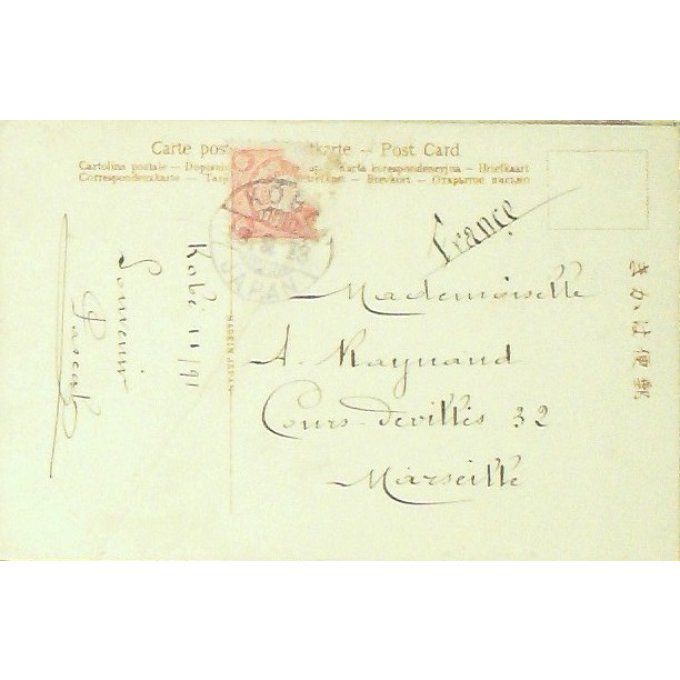 Carte pos tkarte – Post Card
Cartolina postale – Dopisni karta korespondencyjna – Briefkaart
Correspondenzkarte – Brevkort – Открытое письмо
KOBE
JAPAN
France
Mademoiselle
A. Raynaud
Cours devilliès 32
Marseille
Kobé 11/91
Souvenir
Pascal
MADE IN JAPAN
きかは便郵